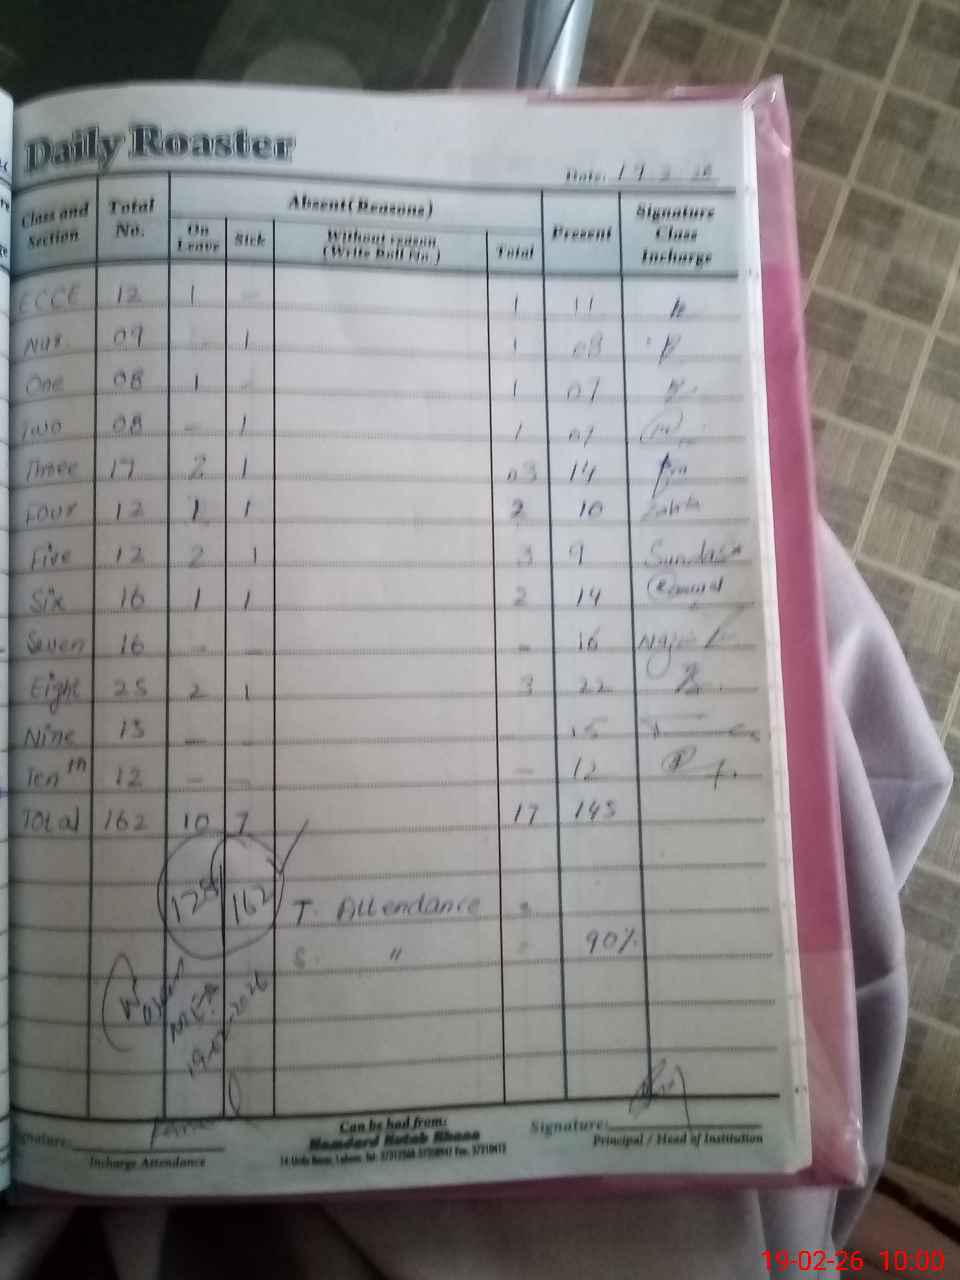 Daily Roaster
Date: 19-2-26
Class and Section Total No. Absent (Reasons) Present Signature Class Incharge
On Leave Sick Without reason (Write Roll No.) Total
ECCE 12 1 - 1 11
Nur 09 - 1 1 08
One 08 1 - 1 07
Two 08 - 1 1 07
Three 17 2 1 03 14
Four 12 1 1 2 10
Five 12 2 1 3 9 Sundas
Six 16 1 1 2 14
Seven 16 - - - 16
Eight 25 2 1 3 22
Nine 15 - - 15
Ten th 12 - - - 12
Total 162 10 7 17 145
162
T. Attendance =
S. " = 90%
MEA
19-02-2026
Signature:
Incharge Attendance
Can be had from:
Hamdard Kutab Khana
Signature:
Principal / Head of Institution
19-02-26 10:00